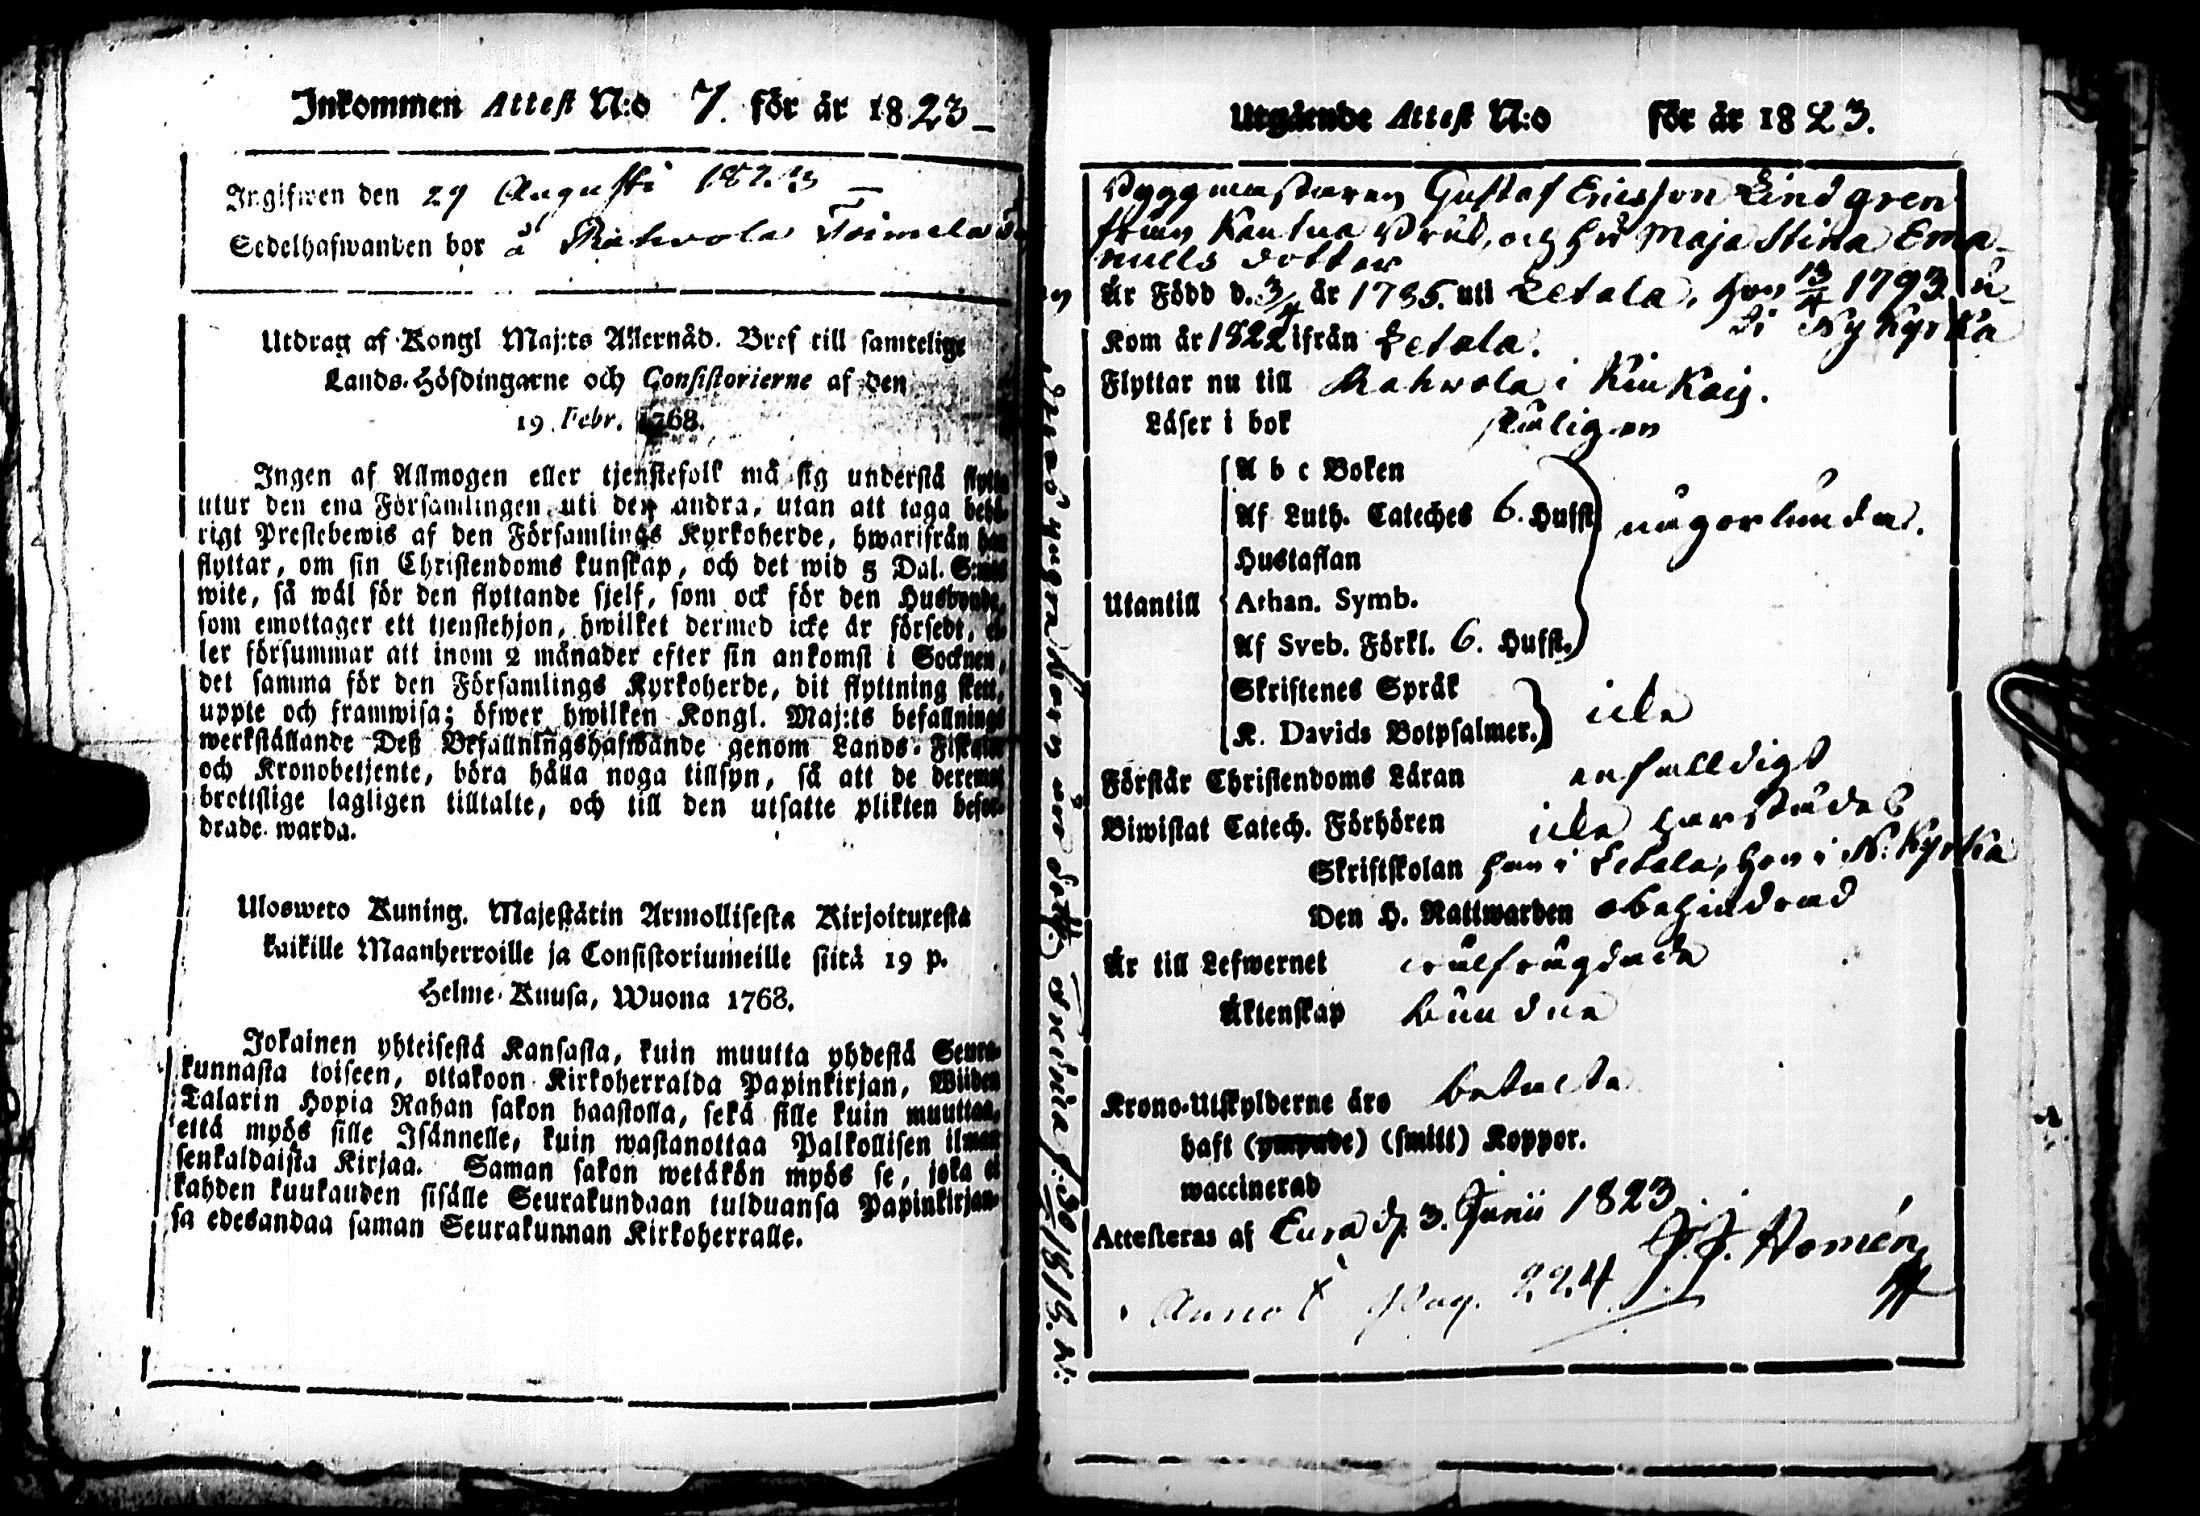 Inkommen Attest N:o 7. för år 1823
Ingifwen den 29 Augusti 1823
Sedelhafwanden bor å Rahvola Toimela
Utdrag af Kongl Maj:ts Allernåd. Bref till samtelige
Lands-Höfdingarne och Consistorierne af den
19 Febr. 1768.
Ingen af Allmogen eller tjenstefolk må sig understå flytta
utur den ena Församlingen uti den andra, utan att taga behö-
rigt Prestebewis af den Församlings Kyrkoherde, hwarifrån han
flyttar, om sin Christendoms kunskap, och det wid 5 Dal. S:mts
wite, så wäl för den flyttande sjelf, som ock för den Husbonde,
som emottager ett tjenstehjon, hwilket dermed icke är försedt, el-
ler försummar att inom 2 månader efter sin ankomst i Socknen,
det samma för den Församlings Kyrkoherde, dit flyttning skett,
uppte och framwisa; öfwer hwilken Kongl. Maj:ts befallnings
werkställande Deß Befallningshafwande genom Lands-Fiskaler
och Kronobetjente, böra hålla noga tillsyn, så att de deremot
brottslige lagligen tilltalte, och till den utsatte plikten befor-
drade warda.
Ulosweto Kuning. Majestätin Armollisesta Kirjoituxesta
kaikille Maanherroille ja Consistoriumeille siitä 19 p.
Helme-Kuusa, Wuona 1768.
Jokainen yhteisestä Kansasta, kuin muutta yhdestä Seura-
kunnasta toiseen, ottakoon Kirkoherralda Papinkirjan, Wiiden
Talarin Hopia Rahan sakon haastolla, sekä sille kuin muuttaa,
että myös sille Isännelle, kuin wastanottaa Palkollisen ilman
senkaldaista Kirjaa. Saman sakon wetäkön myös se, joka ei
kahden kuukauden sisälle Seurakundaan tulduansa Papinkirjan-
sa edesandaa saman Seurakunnan Kirkoherralle.
Utgående Attest N:o för år 1823.
Byggmästaren Gustaf Ericsson Lindgren
från Kautua Bruk, och Hu Maja Stina Ema-
nuels dotter
Är Född d. 3/4 år 1785. uti Letala, hon 13/4 1793 u-
ti Nykyrka
Kom år 1822 ifrån Letala.
Flyttar nu till Rahvola i Kiukais.
Läser i bok
Utantill
A b c Boken
Af Luth. Cateches 6. Hufst.
Hustaflan
Athan. Symb.
Af Sveb. Förkl. 6. Hufst.
någorlunda.
Skriftenes Språk
K. Davids Botpsalmer.
icke
Förstår Christendoms Läran enfaldigt
Biwistat Catech. Förhören icke härstädes
Skriftskolan han i Letala, hon i N. Kyrka
Den H. Nattwarden obehindrad
Är till Lefwernet wälfrägdade
Äktenskap bundna
Krono-Utskylderne äro betalta
haft (ympade) (smitt) Koppor.
waccinerad
Attesteras af Eura d. 3. Junii 1823
J. J. Homén
Annot Pag. 224